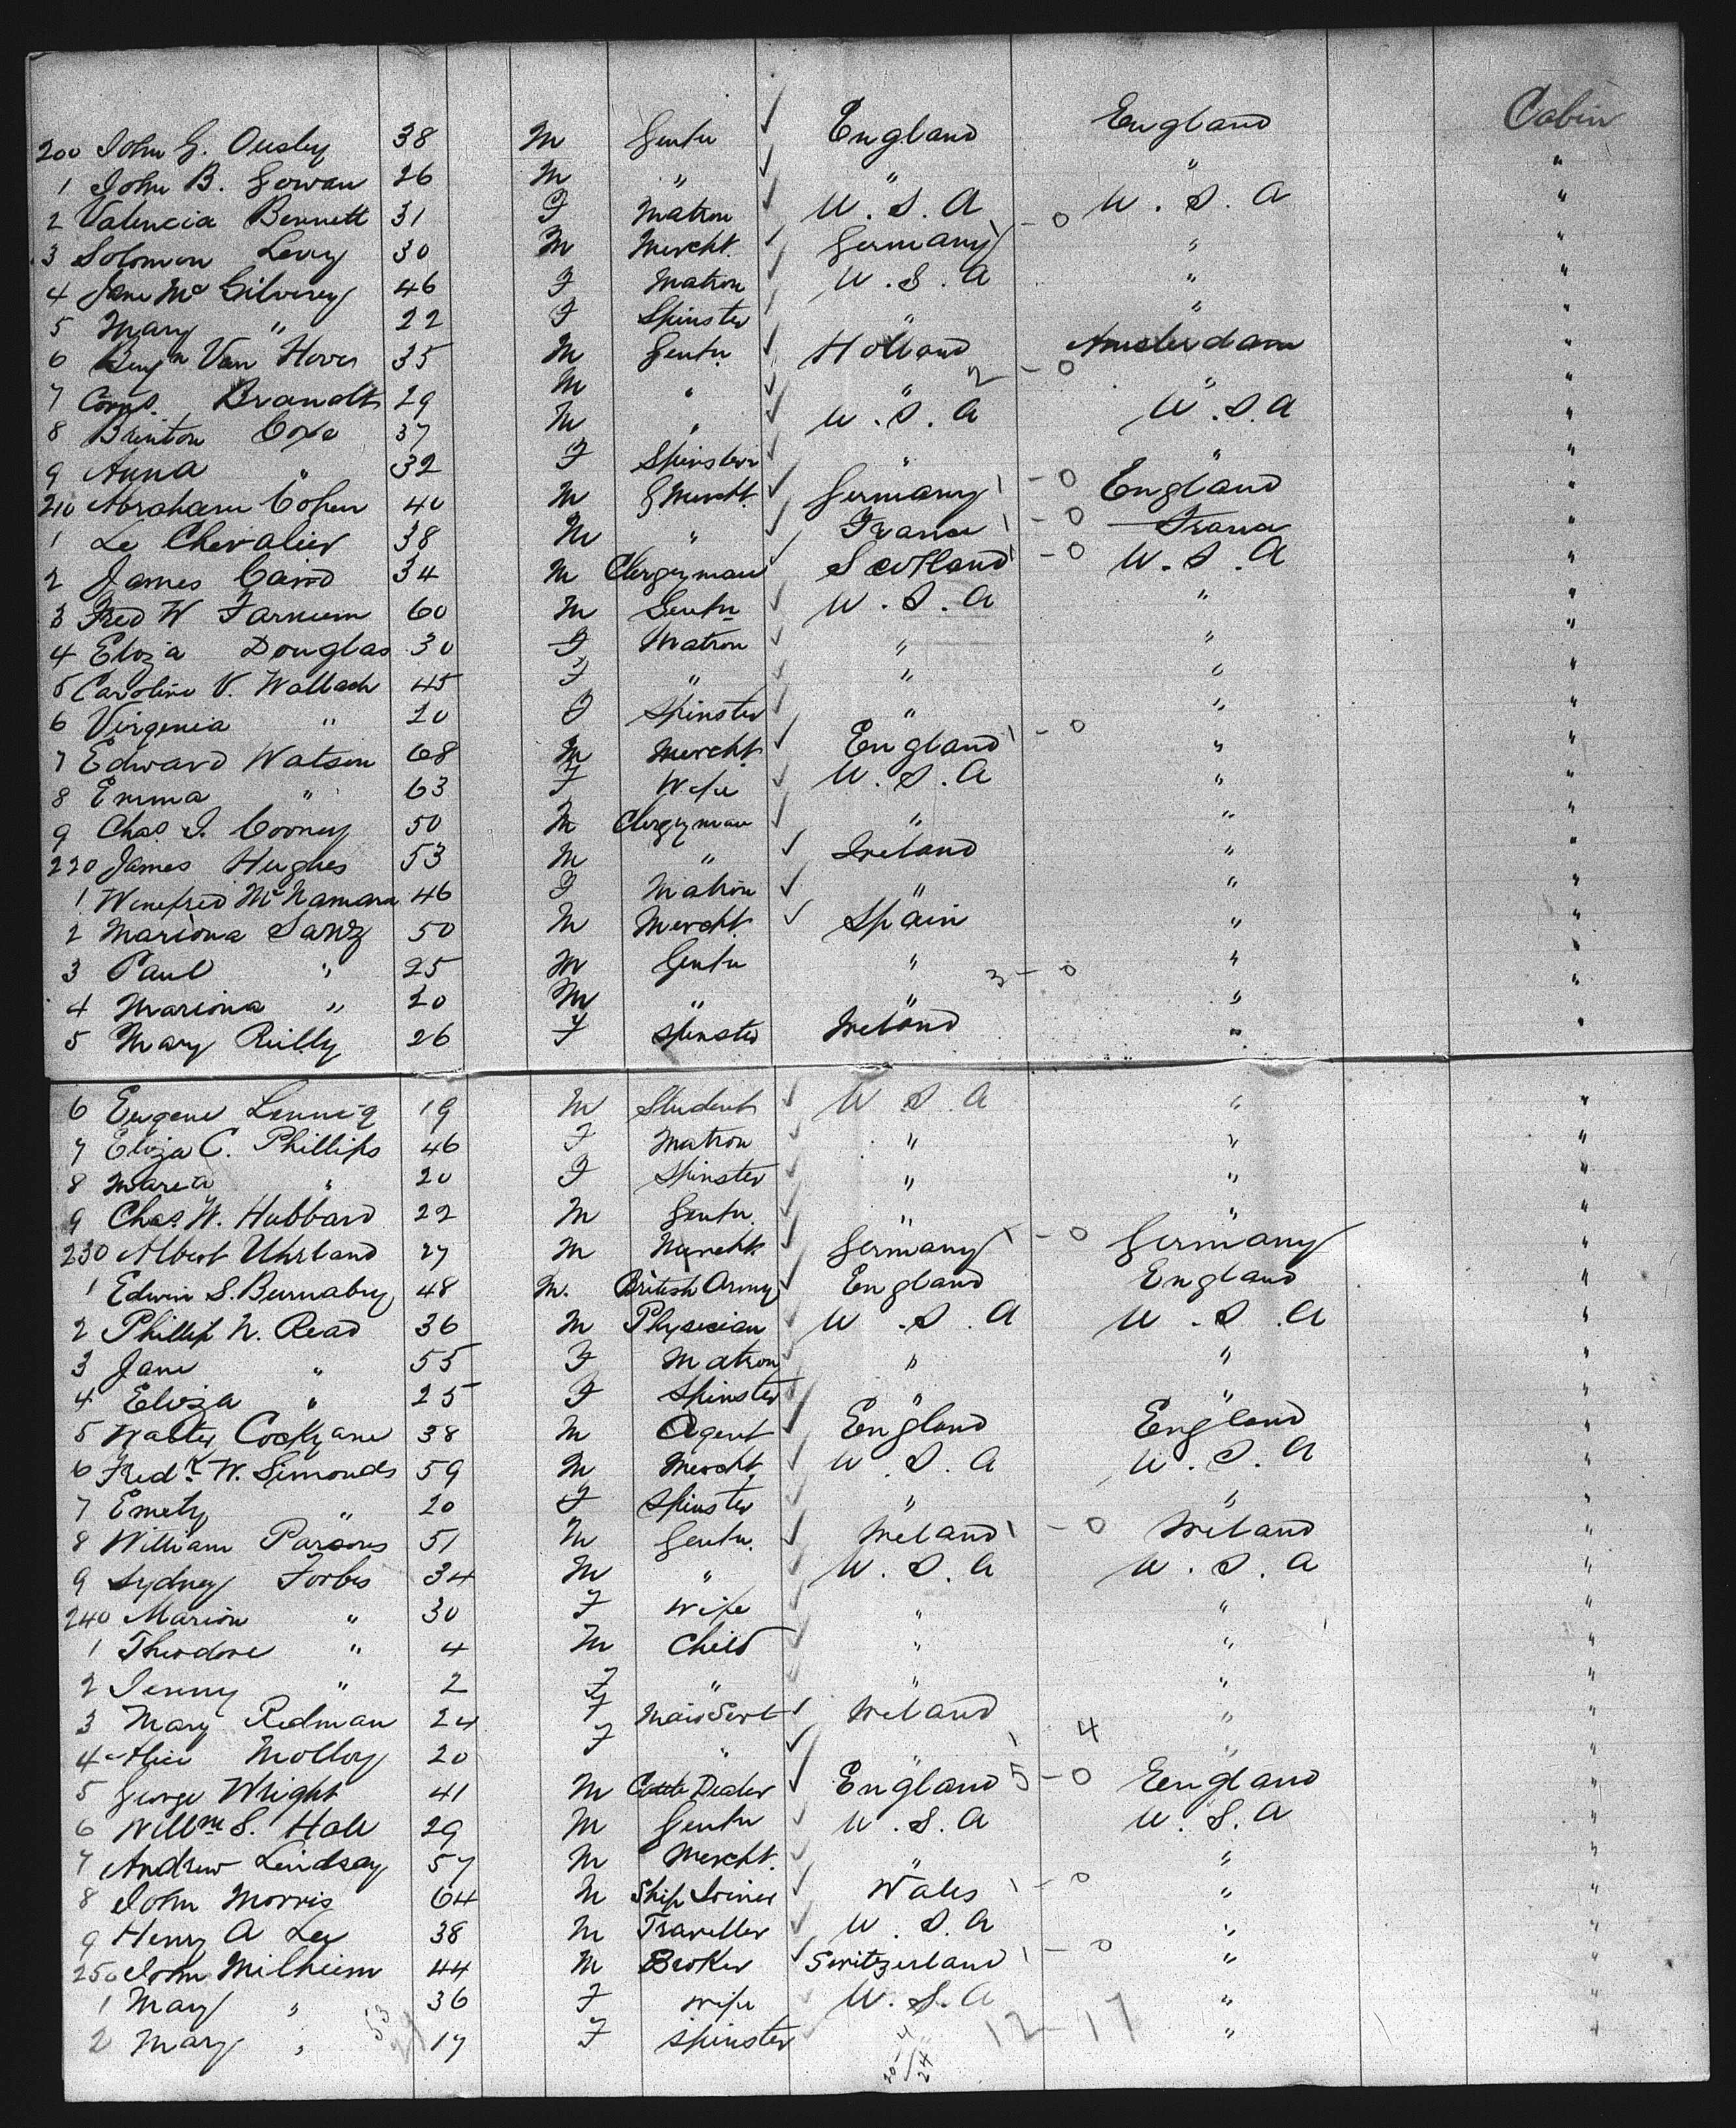 Cabin
200 John G. Ousley 38 M Gentn England England
1 John B. Gowan 26 M " " " "
2 Valencia Bennett 31 F Matron U.S.A U.S.A "
3 Solomon Levy 30 M Mercht. Germany 1 - 0 " "
4 Jane McGilverey 46 F Matron U.S.A " "
5 Mary " 22 F Spinster " " "
6 Benjn Van Hoves 35 M Gentn Holland Amsterdam "
7 Corns. Brandts 29 M " " 2 - 0 " "
8 Brinton Coxe 37 M " U.S.A U.S.A "
9 Anna " 32 F Spinster " " "
210 Abraham Cohen 40 M Mercht. Germany 1 - 0 England "
1 Le Chevalier 38 M " France 1 - 0 France "
2 James Caird 34 M Clergyman Scotland 1 - 0 U.S.A "
3 Fred W Farnum 60 M Gentn U.S.A " "
4 Eliza Douglas 30 F Matron " " "
5 Caroline V. Wallach 45 F " " " "
6 Virginia " 20 F Spinster " " "
7 Edward Watson 68 M Mercht. England 1 - 0 " "
8 Emma " 63 F Wife U.S.A " "
9 Chas I. Cooney 50 M Clergyman " " "
220 James Hughes 53 M " Ireland " "
1 Winefred McNamara 46 F Matron " " "
2 Mariona Sanz 50 M Mercht. Spain " "
3 Paul " 25 M Gentn " " "
4 Mariona " 20 M " " 3 - 0 " "
5 Mary Reilly 26 F Spinster Ireland " "
6 Eugene Lennig 19 M Student U S A " "
7 Eliza C. Phillips 46 F Matron " " "
8 Maria " 20 F Spinster " " "
9 Chas. W. Hubbard 22 M Gentn. " " "
230 Albert Uhrland 27 M Mercht Germany 1 - 0 Germany "
1 Edwin S. Burnaby 48 M. British Army England England "
2 Phillip N. Read 36 M Physician U.S.A U.S.A "
3 Jane " 55 F Matron " " "
4 Eliza " 25 F Spinster " " "
5 Walter Cockyane 38 M Agent England England "
6 Fredk W. Simonds 59 M Mercht U.S.A U.S.A "
7 Emely " 20 F Spinster " " "
8 William Parsons 51 M Gentn. Ireland 1 - 0 Ireland "
9 Sydney Forbes 34 M " U.S.A U.S.A "
240 Marion " 30 F Wife " " "
1 Theodore " 4 M Child " " "
2 Jenny " 2 F " " " "
3 Mary Redman 24 F Maid Servt Ireland " "
4 Alice Molloy 20 F " " 1 4 " "
5 George Wright 41 M Cattle Dealer England 5 - 0 England "
6 Willm S. Hall 29 M Gentn U.S.A U.S.A "
7 Andrew Lindsay 57 M Mercht. " " "
8 John Morris 64 M Ship Joiner Wales 1 - 0 " "
9 Henry A Lee 38 M Traveller U.S.A " "
250 John Milheim 44 M Broker Switzerland 1 - 0 " "
1 Mary " 36 F Wife U.S.A " "
2 Mary " 17 F Spinster " 12 - 17 " "